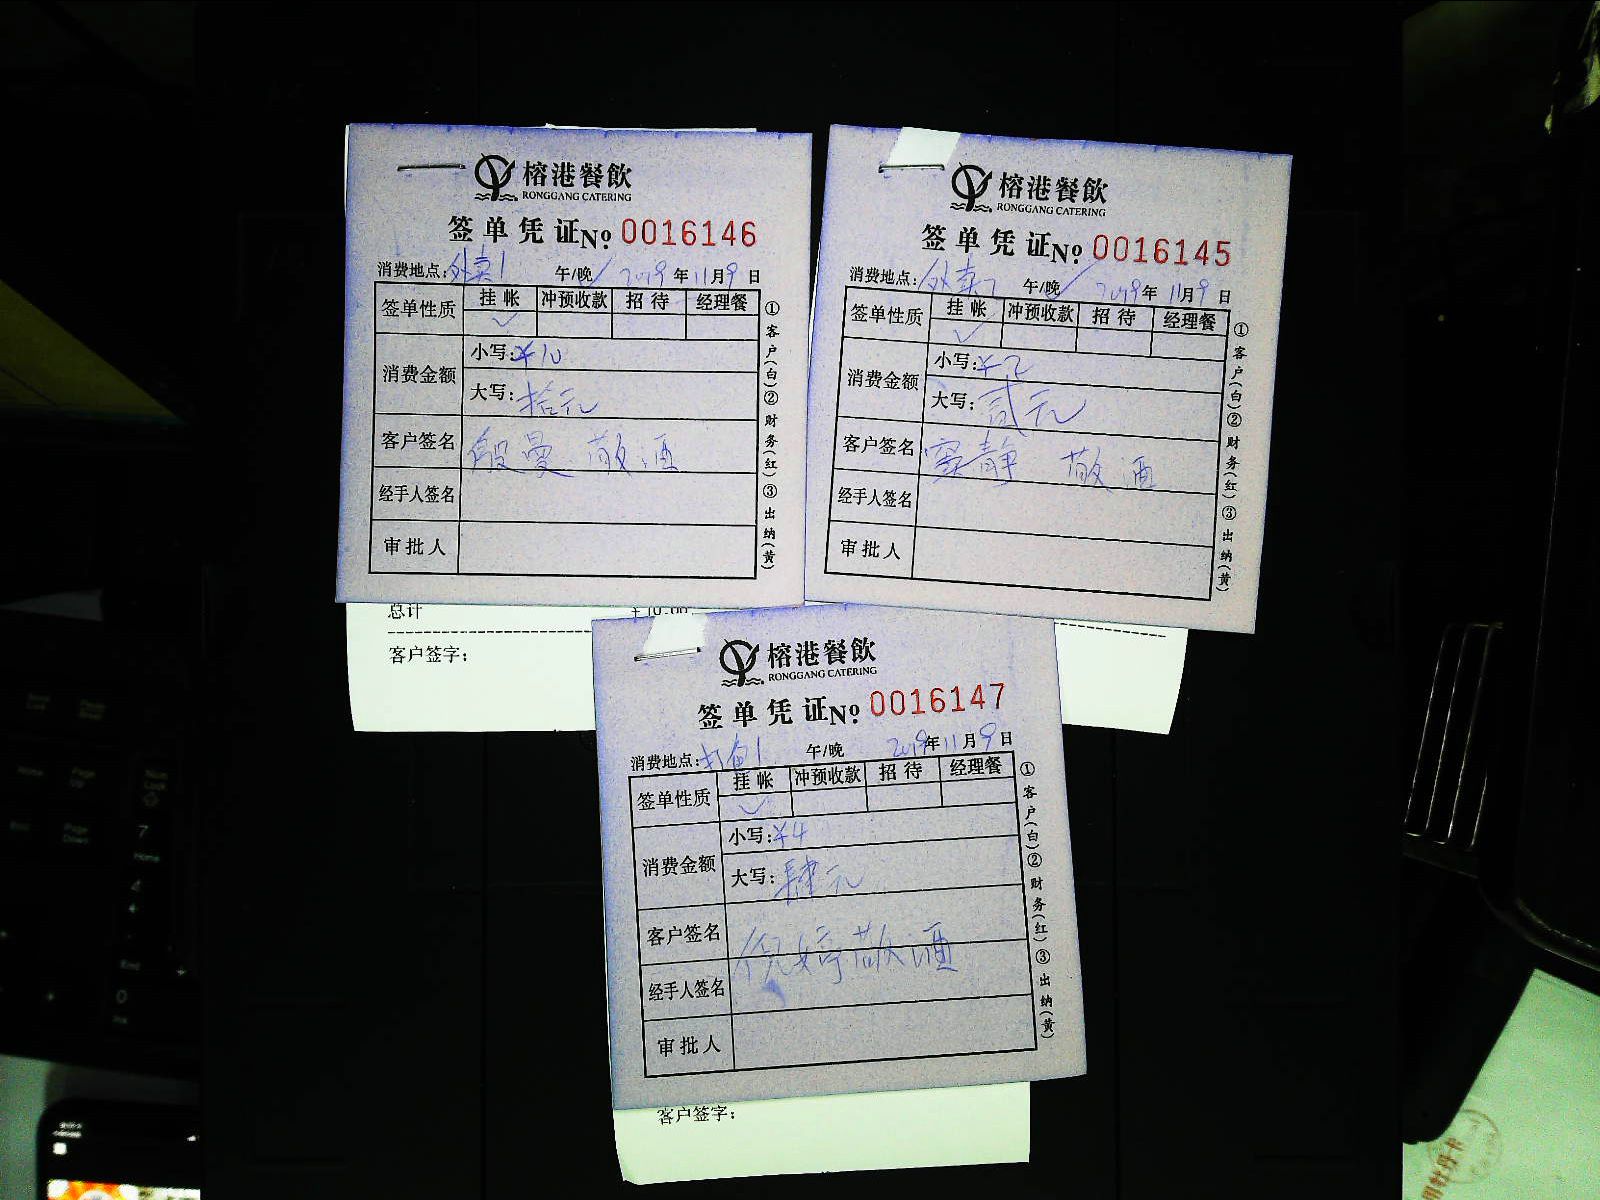 榕港餐飲
RONGGANG CATERING
签单凭证No 0016146
消费地点:外卖1 午/晚✓ 2019年11月9日
签单性质 挂帐 冲预收款 招待 经理餐
✓
消费金额 小写:¥10
大写:拾元
客户签名 殷曼 敬酒
经手人签名
审批人
①客户(白)②财务(红)③出纳(黄)
总计 ¥10.00
客户签字:
榕港餐飲
RONGGANG CATERING
签单凭证No 0016145
消费地点:外卖 午/晚✓ 2019年11月9日
签单性质 挂帐 冲预收款 招待 经理餐
✓
消费金额 小写:¥2
大写:贰元
客户签名 窦静 敬酒
经手人签名
审批人
①客户(白)②财务(红)③出纳(黄)
榕港餐飲
RONGGANG CATERING
签单凭证No 0016147
消费地点: 午/晚 2019年11月9日
签单性质 挂帐 冲预收款 招待 经理餐
✓
消费金额 小写:¥4
大写:肆元
客户签名 倪婷敬酒
经手人签名
审批人
①客户(白)②财务(红)③出纳(黄)
客户签字: